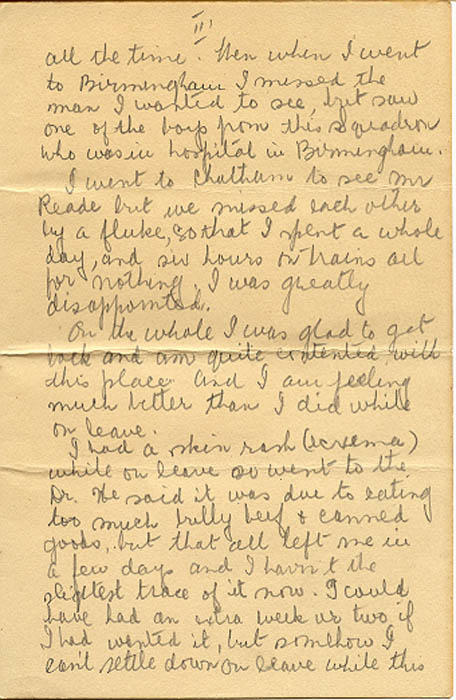 III
all the time. Then when I went
to Birmingham I missed the
man I wanted to see, but saw
one of the boys from this squadron
who was in hospital in Birmingham.
I went to Chatham to see Mr
Reade but we missed each other
by a fluke, so that I spent a whole
day, and six hours on trains all
for nothing. I was greatly
disappointed.
On the whole I was glad to get
back and am quite contented with
this place and I am feeling
much better than I did while
on leave.
I had a skin rash (eczema)
while on leave so went to the
Dr. He said it was due to eating
too much bully beef & canned
goods, but that all left me in
a few days and I havn't the
slightest trace of it now. I could
have had an extra week or two if
I had wanted it, but somehow I
can't settle down on leave while this